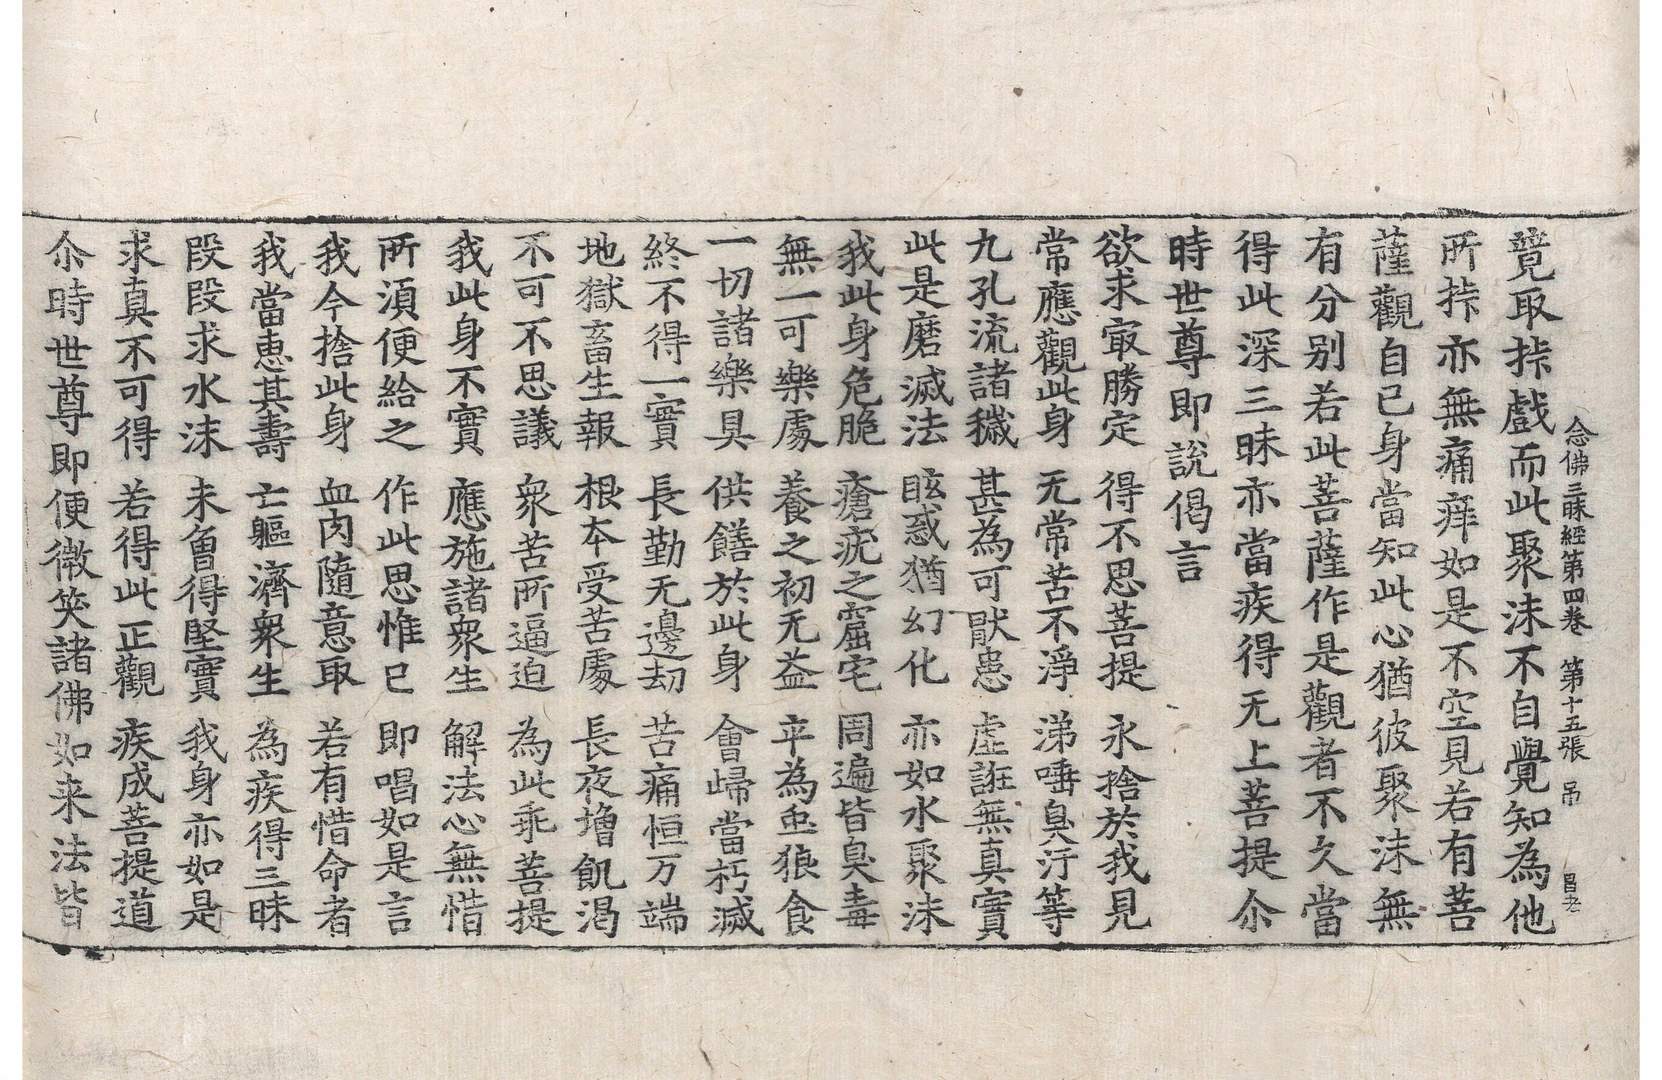 念佛三昧經第四卷 第十五張 吊 昌老
竟取捽戱而此聚沫不自覺知為他
所捽亦無痛痒如是不空見若有菩
薩觀自己身當知此心猶彼聚沫無
有分别若此菩薩作是觀者不久當
得此深三昧亦當疾得无上菩提尒
時世尊即說偈言
欲求㝡勝定 得不思菩提 永捨於我見
常應觀此身 无常苦不淨 涕唾臭汙等
九孔流諸穢 甚為可猒患 虚誑無真實
此是磨滅法 眩惑猶幻化 亦如水聚沫
我此身危脆 瘡疣之窟宅 周遍皆臭毒
無一可樂處 養之初无益 卒為䖝狼食
一切諸樂具 供饍於此身 會歸當朽滅
終不得一實 長勤无邊劫 苦痛恒万端
地獄畜生報 根本受苦處 長夜增飢渴
不可不思議 衆苦所逼迫 為此乖菩提
我此身不實 應施諸衆生 解法心無惜
所湏便給之 作此思惟已 即唱如是言
我今捨此身 血肉隨意取 若有惜命者
我當惠其壽 亡軀濟衆生 為疾得三昧
段段求水沫 未曾得堅實 我身亦如是
求真不可得 若得此正觀 疾成菩提道
尒時世尊即便微笑諸佛如来法皆